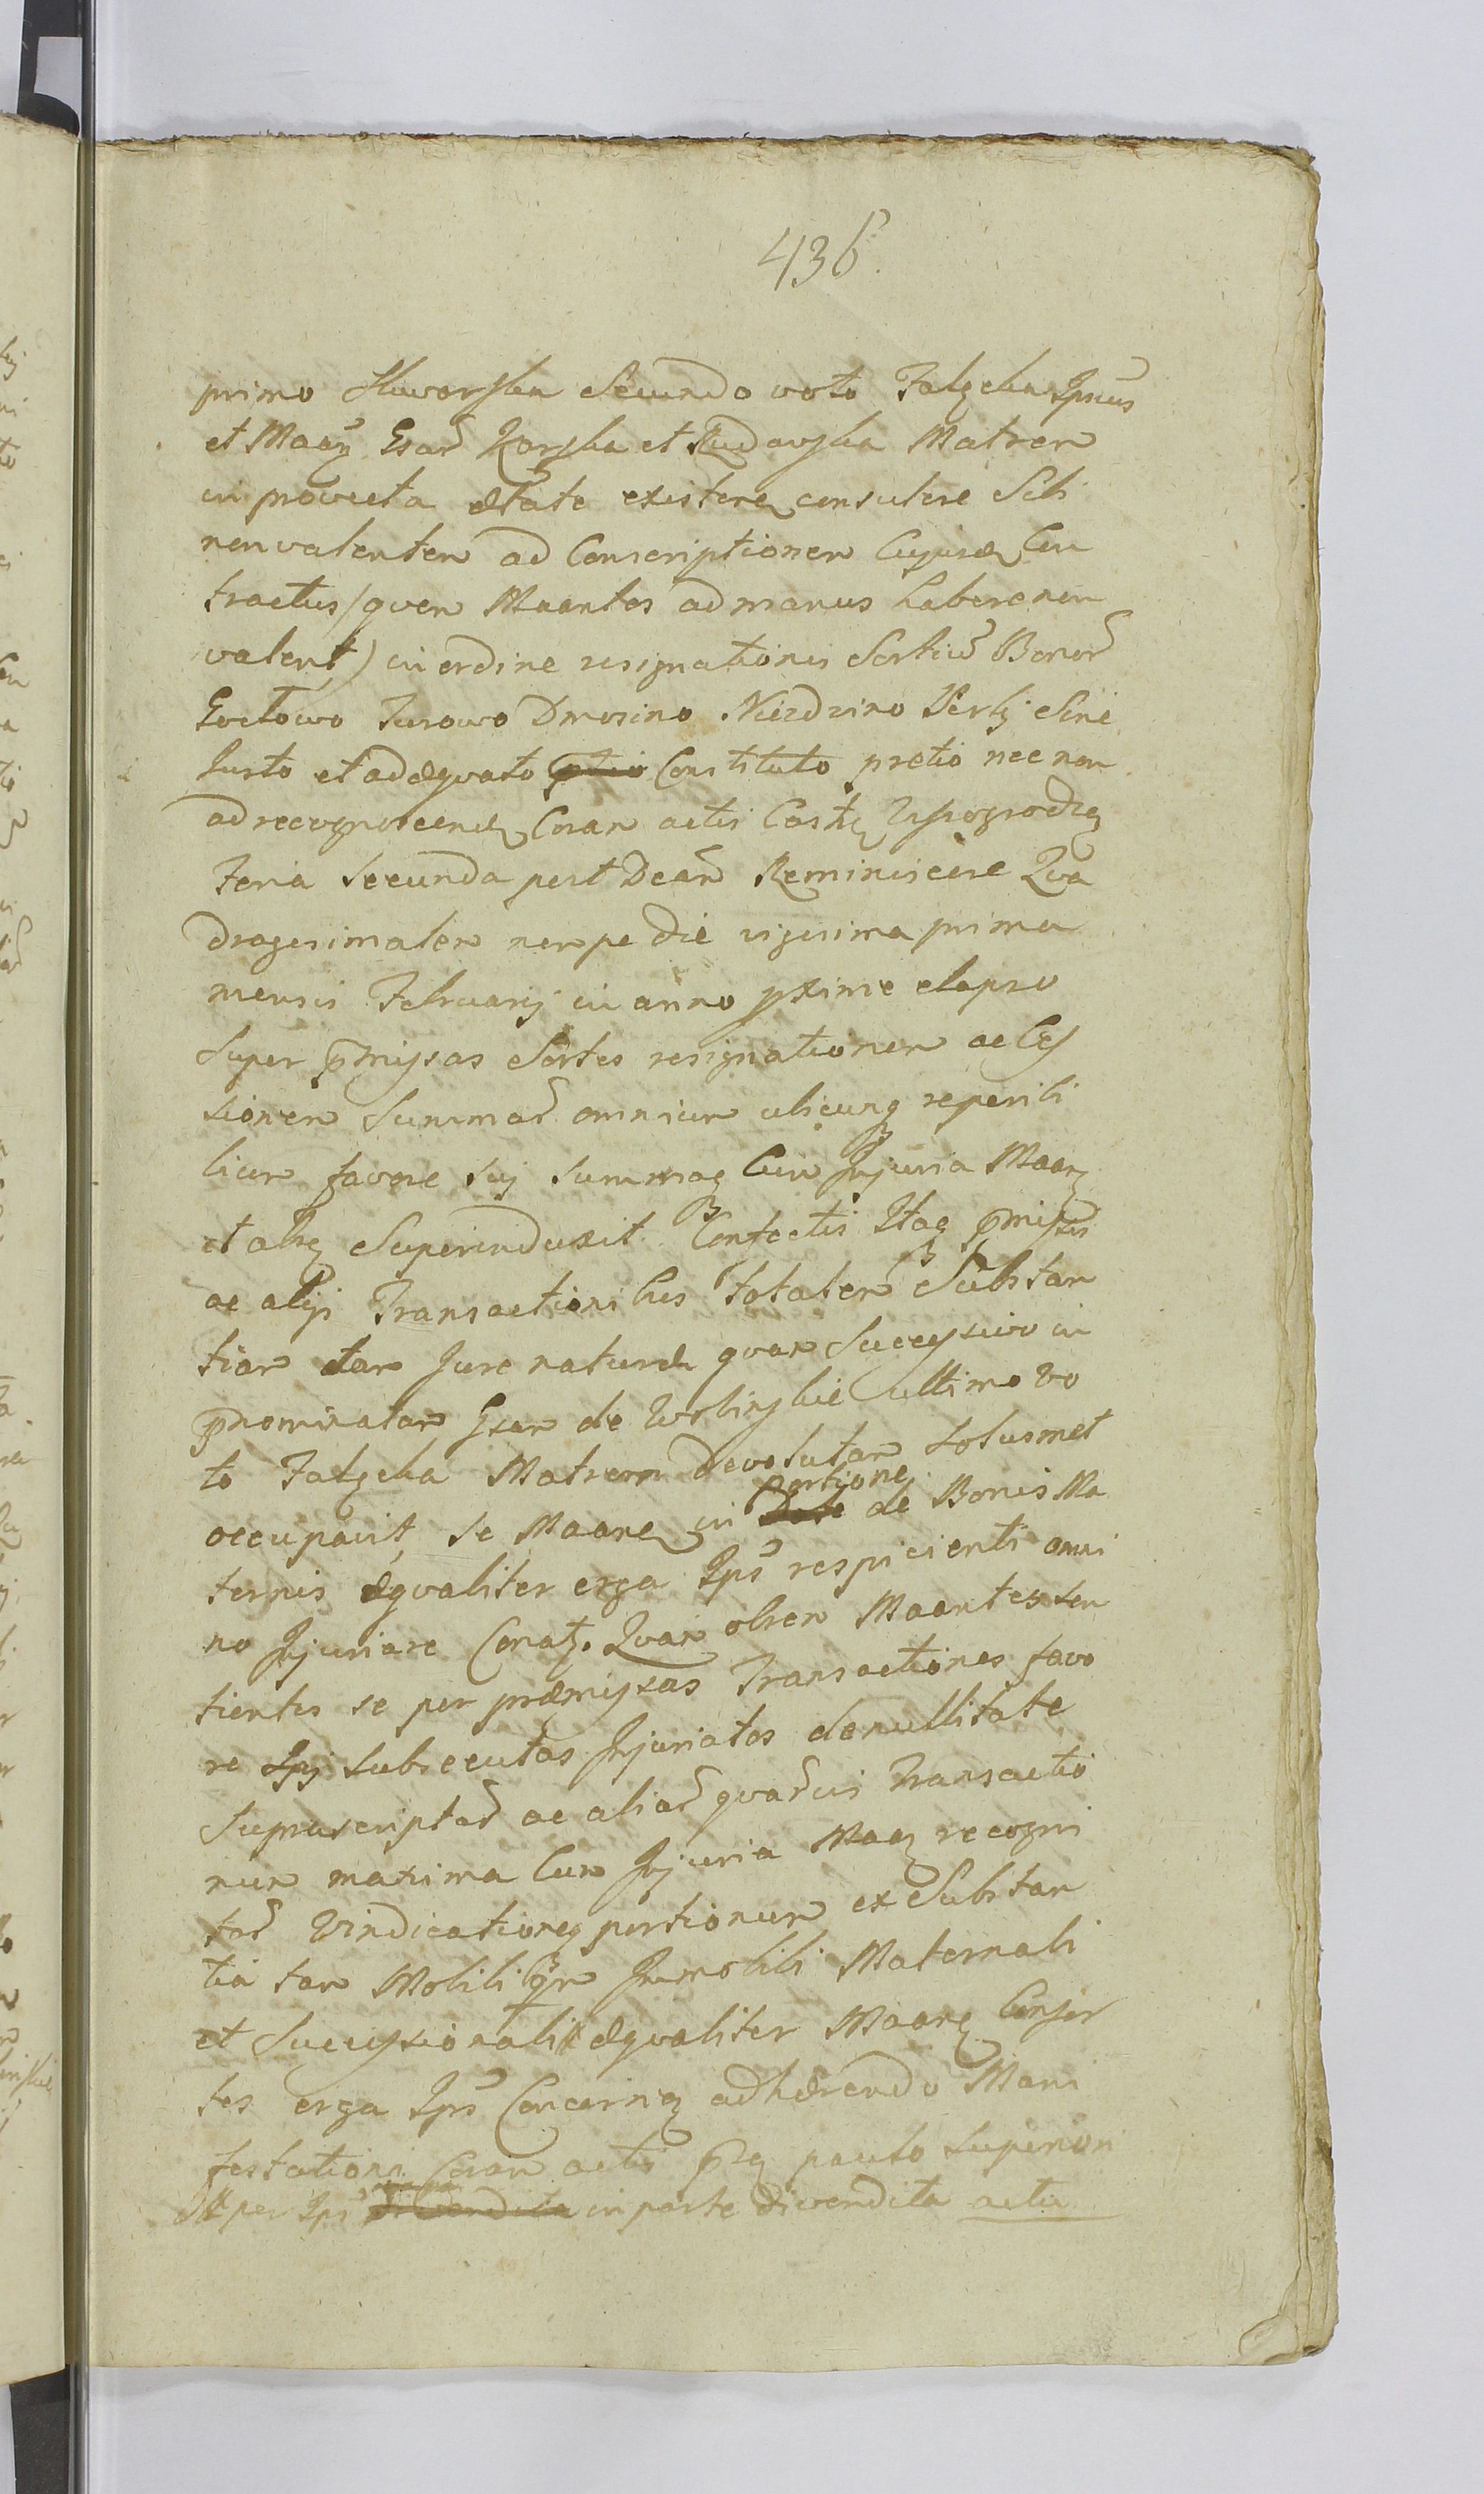 436.
primo Skworska Secundo voto Falęcka Ipsius
et Maan Gsar Karska et Rudawska Matrem
in provecta ætate existen consulere Sibi
non valentem ad Conscriptionem Cujusd Con
tractus /quem Maantes ad manus habere non
valent) in ordine resignationis Sortiu Bonor
Gostowo Jurowo Dmosino Niezdzino Verbj Sine
Justo et adæquato Constituto pretio nec non
ad recognoscend Coram actis Castr Wyszogrodz
Feria Secunda post Dcam Reminiscere Qua
dragesimalem nempe die vigesima prima
mensis Februarij in anno pxime elapso
Super pmissas Sortes resignationem ac Ces
sionem Summar omnium ubicunq reperibi
lium favore suj summaq Cum Injuria Maan
et aliq Superinduxit Confectis Itaq pmissis
ac alijs Transactionibus totalem Substan
tiam tam Jure naturæ quam Successivo in
pnominatam Gsam de Wolinskie ultimo vo
to Falęcka Matrem devolutam solusmet
occupavit, se Maane in portione de Bonis Ma
ternis æqualiter erga Ips respicienti omni
no Injuriare Conat. Quam obrem Maantes sen
tientes se per præmissas Transactiones favo
re Ipsj subsecutas Injuriatos de nullitate
suprascriptar ac aliar quarvis Transactio
num maxima Cum Injuria Maan recogni
tar Vindicationeq portionum ex Substan
tia tam Mobili qm Immobili Maternali
et Successionali # æqualiter Maane Consor
tes erga Ips Concernen adhærendo Mani
festationi Coram actis psen paulo superiori
# per Ips divendita in parte divendita actu